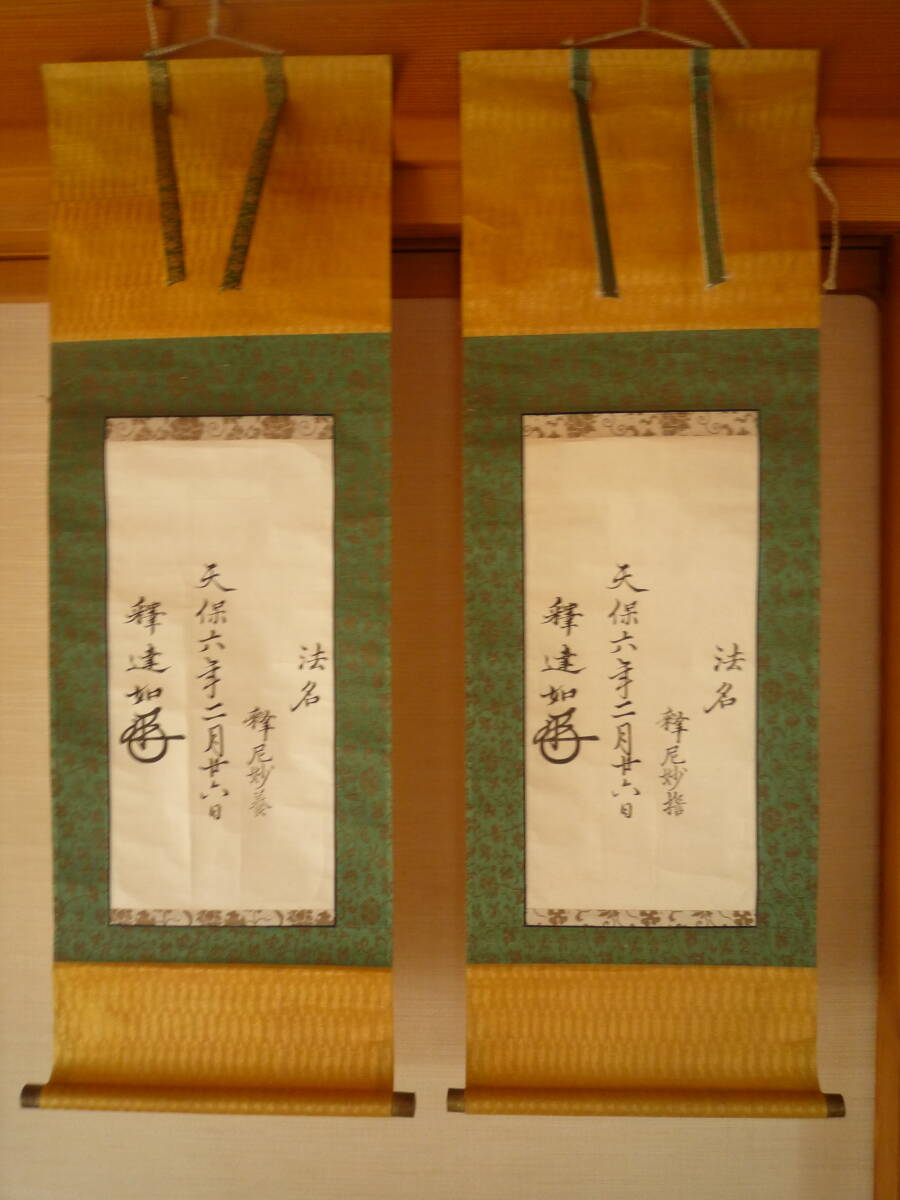 法名
釋尼妙
天保六年二月廿六日
釋達如
法名
釋尼妙養
天保六年二月廿六日
釋達如